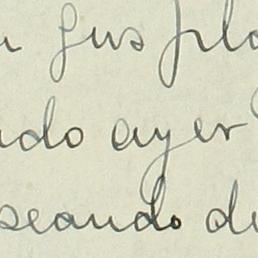 gus pla
ndo ayer
seando de